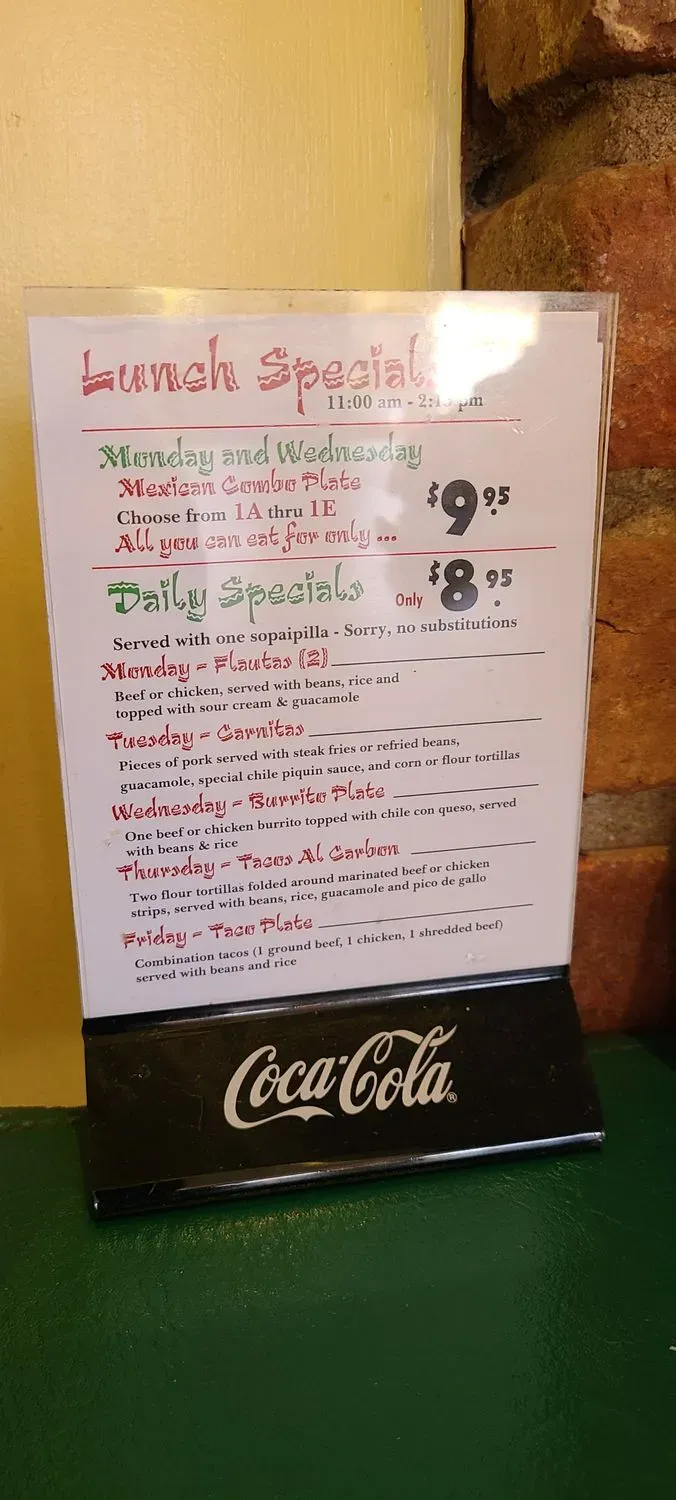 Lunch Specials
11:00 am - 2:15 pm
Monday and Wednesday
Mexican Combo Plate
Choose from 1A thru 1E
All you can eat for only ...
$9.95
Daily Specials
Only $8.95
Served with one sopaipilla - Sorry, no substitutions
Monday = Flautas (2)
Beef or chicken, served with beans, rice and
topped with sour cream & guacamole
Tuesday = Carnitas
Pieces of pork served with steak fries or refried beans,
guacamole, special chile piquin sauce, and corn or flour tortillas
Wednesday = Burrito Plate
One beef or chicken burrito topped with chile con queso, served
with beans & rice
Thursday = Tacos Al Carbon
Two flour tortillas folded around marinated beef or chicken
strips, served with beans, rice, guacamole and pico de gallo
Friday = Taco Plate
Combination tacos (1 ground beef, 1 chicken, 1 shredded beef)
served with beans and rice
Coca-Cola®